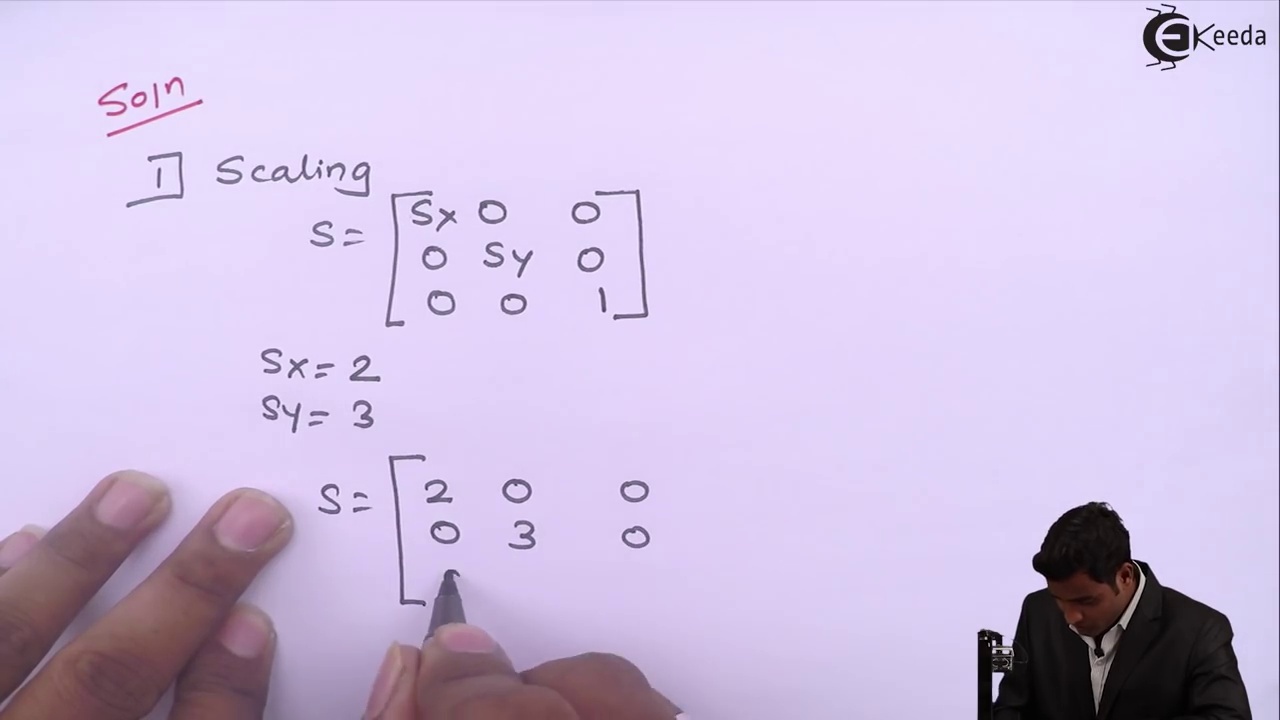 EKeeda
Soln
1 Scaling
S = [ Sx 0 0
0 Sy 0
0 0 1 ]
Sx = 2
Sy = 3
S = [ 2 0 0
0 3 0